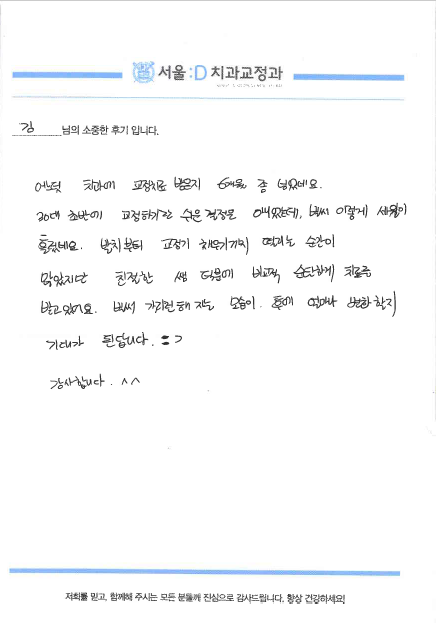 서울:D 치과교정과
김 님의 소중한 후기 입니다.
어느덧 치과에 교정치료 받은지 6개월 좀 넘었네요.
20대 초반에 교정하기란 쉬운 결정은 아니었는데, 벌써 이렇게 세월이
흘렀네요. 발치부터 교정기 채우기까지 떨리는 순간이
많았지만 친절한 쌤 덕분에 비교적 순탄하게 치료를
받고있어요. 벌써 가지런해 지는 모습이. 후에 얼마나 변화할지
기대가 된답니다. :)
감사합니다. ^^
저희를 믿고, 함께해 주시는 모든 분들께 진심으로 감사드립니다. 항상 건강하세요!